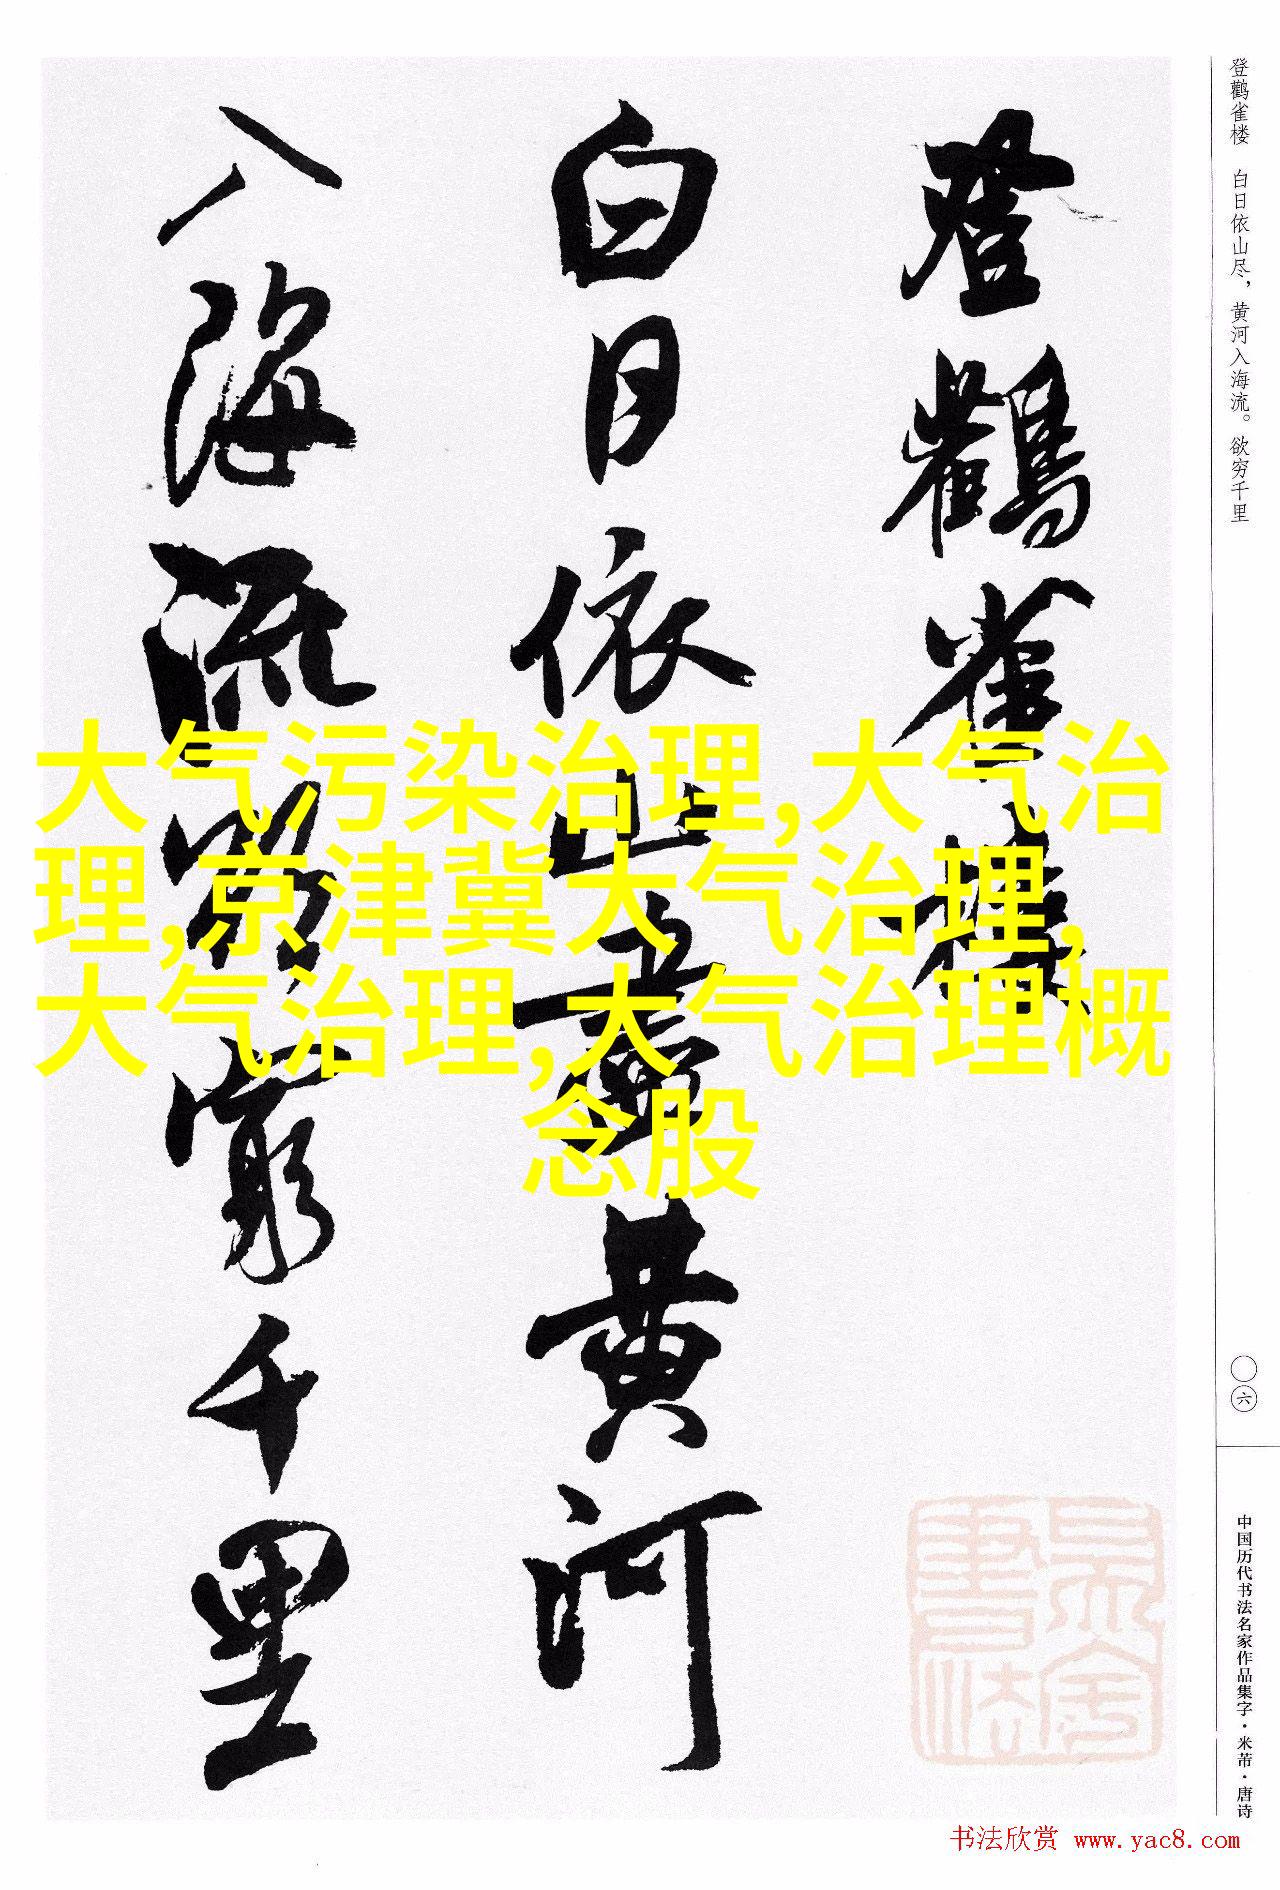 登鹳雀楼 白日依山尽，黄河入海流。欲穷千里
登鸛雀樓
白日依山盡黄河
入海流欲窮千里
大气污染治理,大气治
理,京津冀大气治理,
大气治理,大气治理概
念股
〇六
中国历代书法名家作品集字·米芾·唐诗
书法欣赏 www.yac8.com